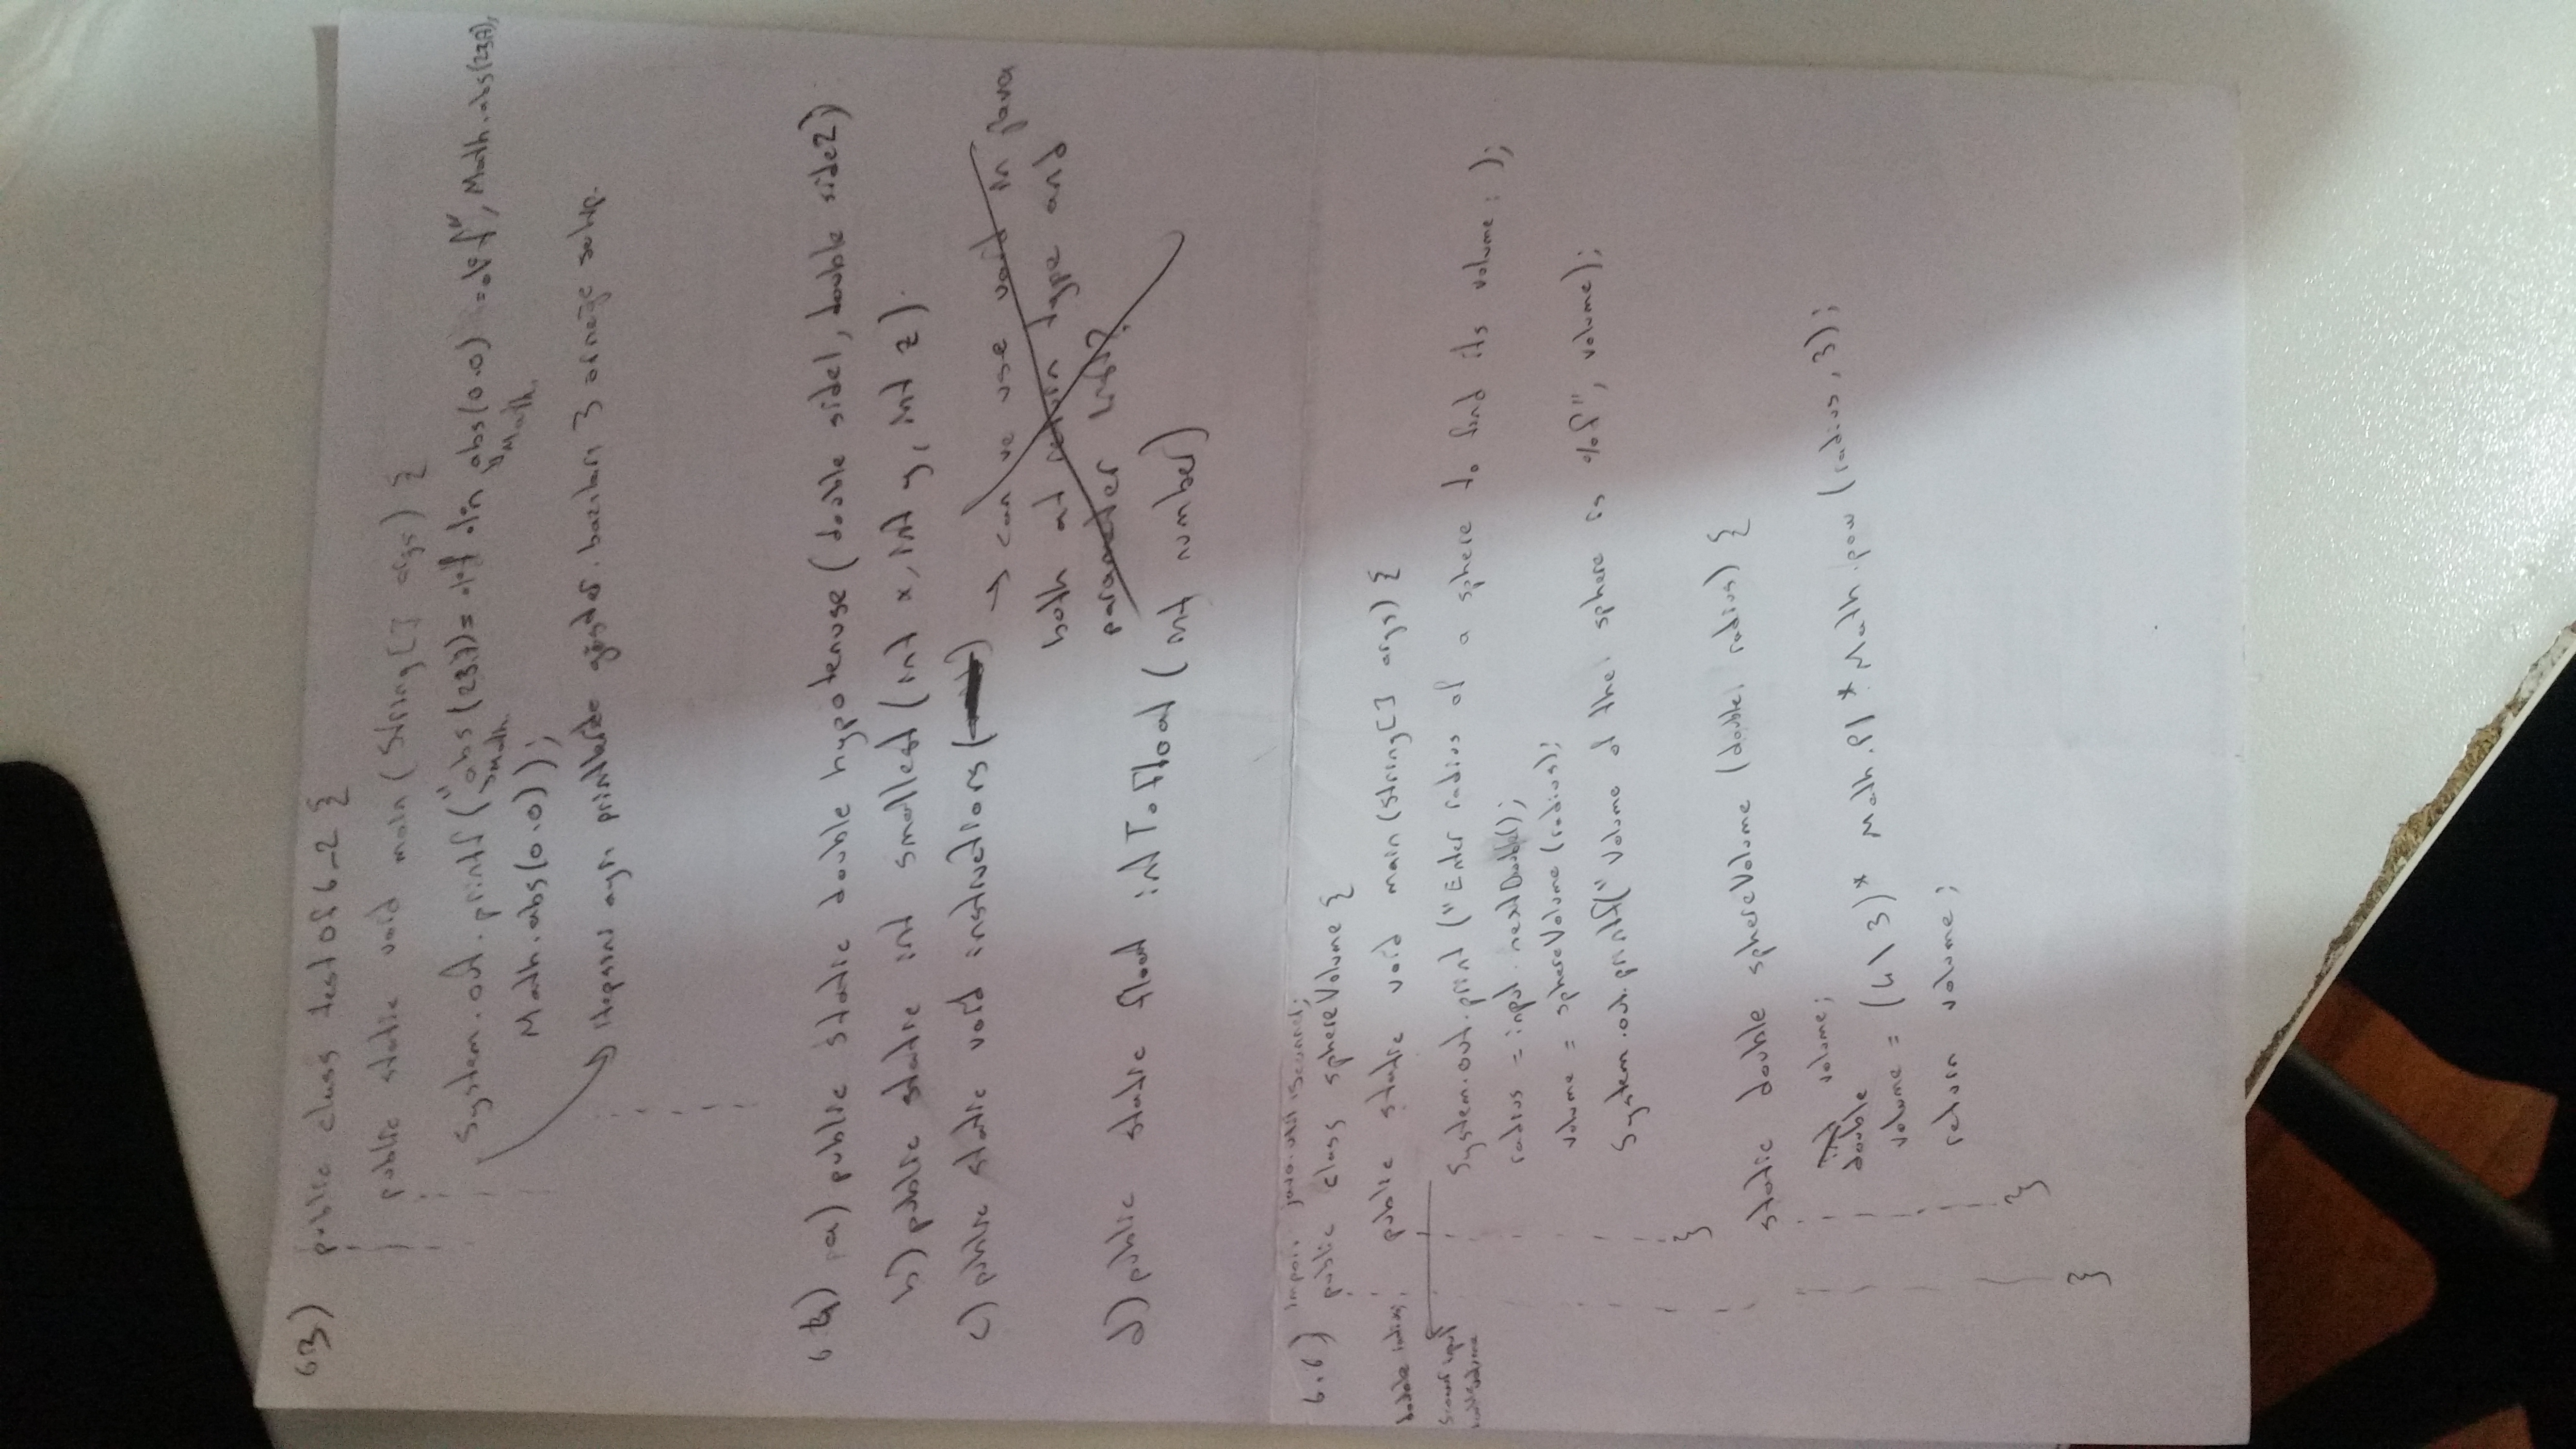 6.3) public class testOf6_2 {
public static void main (String[] args) {
System.out.printf ("abs(23.7)= %f %n abs(0.0) =%f", Math.abs(23.7),
Math. Math.
Math.abs(0.0));
→ hepsini ayrı printlerde göster. bazıları 3 örneğe sahip.
6.4) a) public static double hypotenuse (double side1, double side2)
b) public static int smallest (int x, int y, int z)
c) public static void instructions( )
→ can we use void in java
both at return type and
parameter list?
d) public static float intToFloat (int number)
import java.util.Scanner;
6.6) public class sphereVolume {
public static void main (String[] args) {
double radius;
Scanner input
double volume
System.out.print ("Enter radius of a sphere to find its volume: );
radius = input.nextDouble();
volume = sphereVolume (radius);
System.out.printf(" Volume of the sphere is %f", volume);
}
static double sphereVolume (double radius) {
int volume;
double
volume = (4\3)* Math.PI * Math.pow (radius, 3);
return volume;
}
}